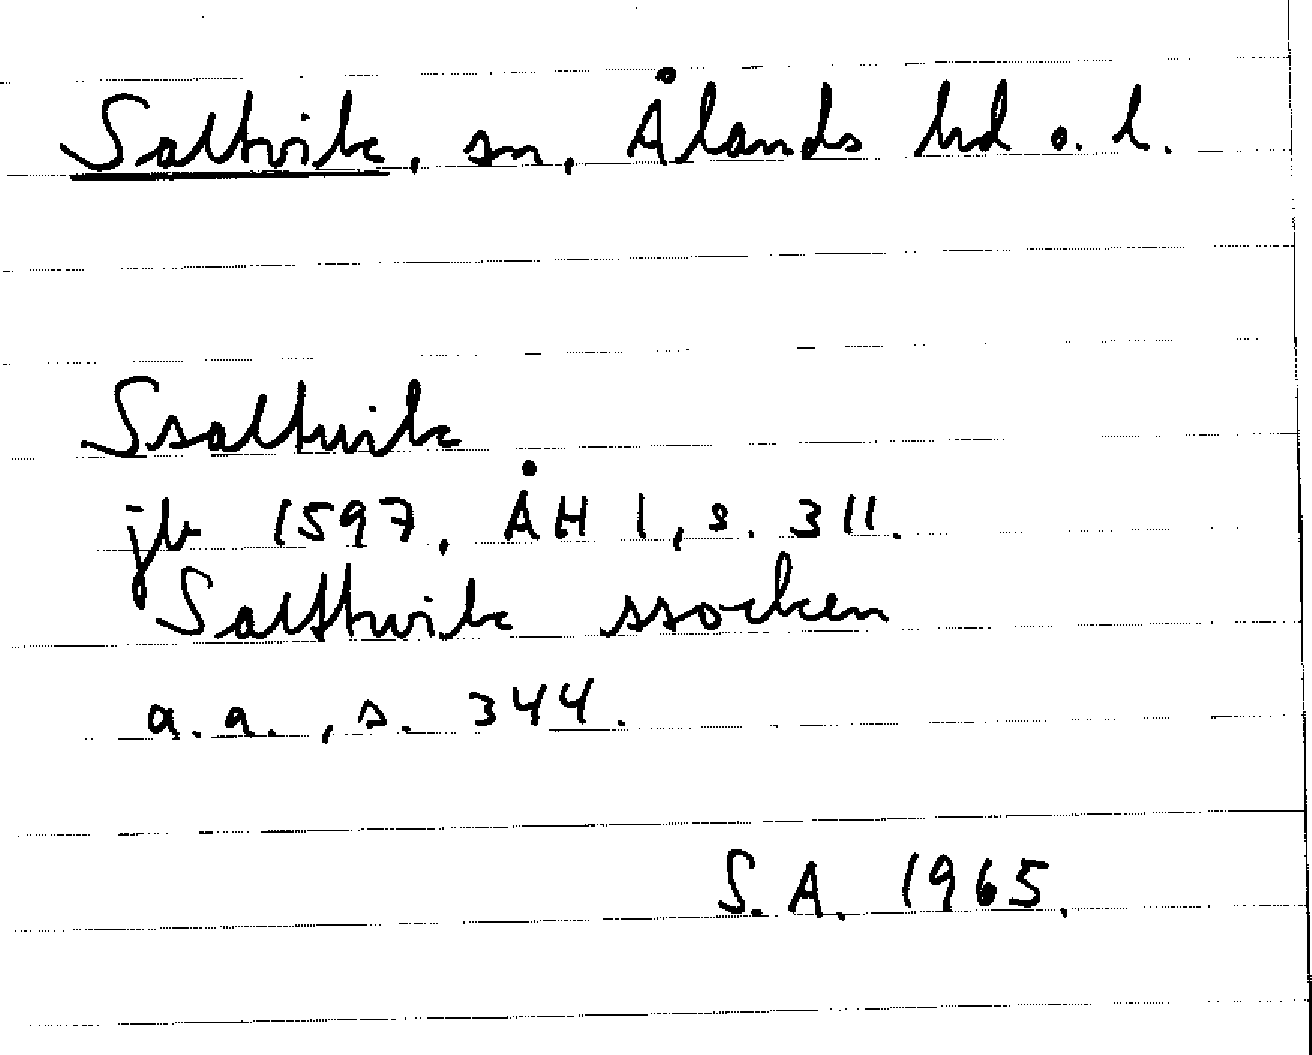 Saltvik, sn, Ålands hd o. l.
Ssaltwik
jb 1597, ÅH 1, s. 311.
Salttwik ssocken
a.a., s. 344.
S.A. 1965.